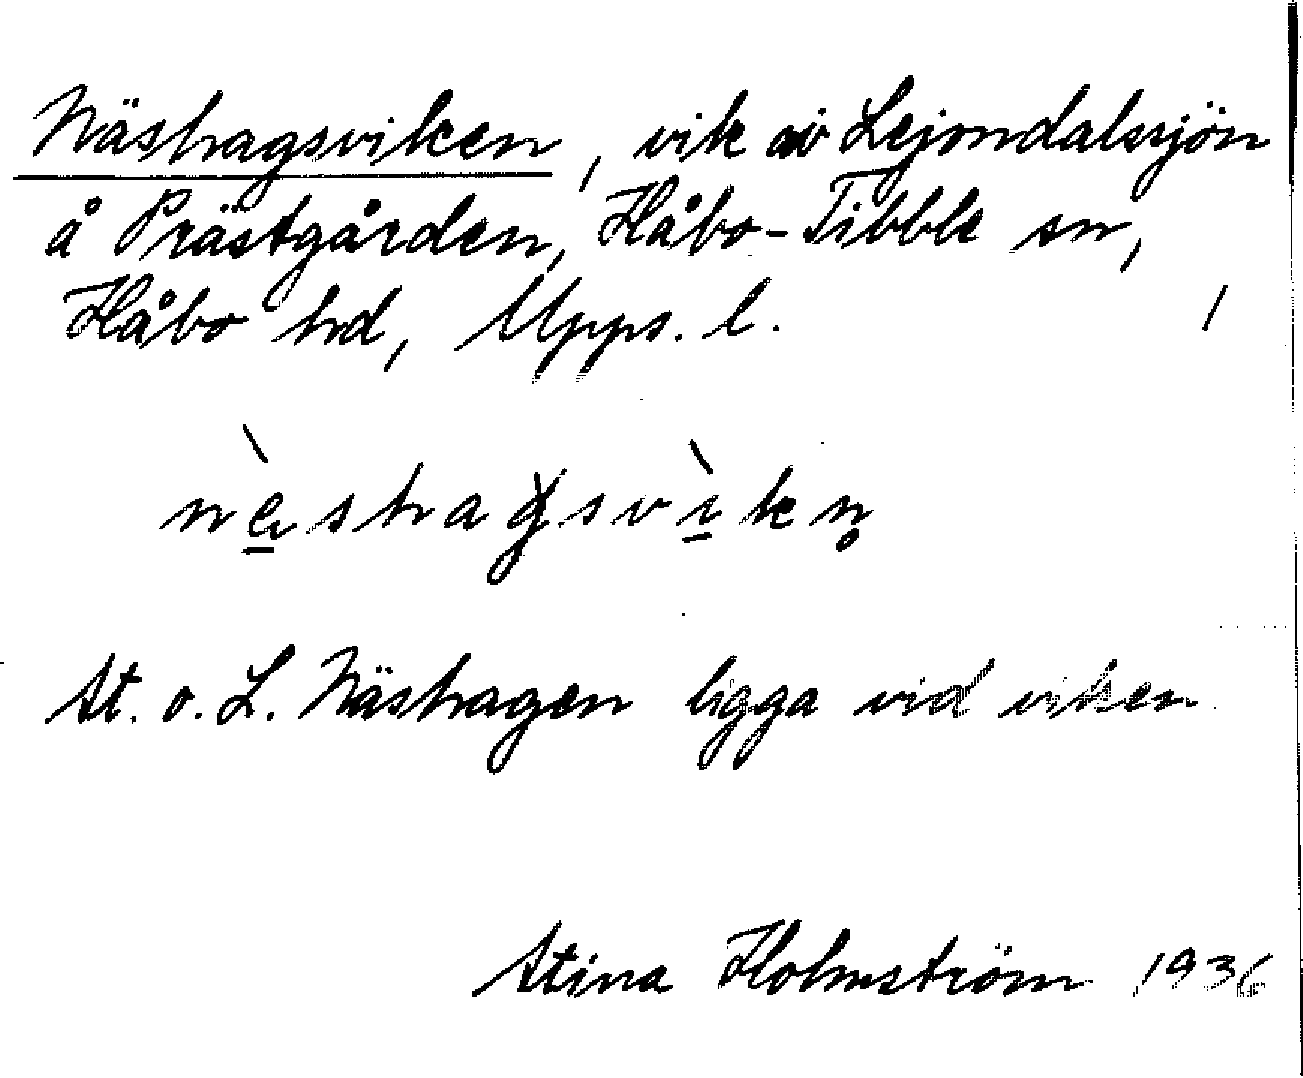 Näshagsviken, vik av Lejondalssjön
å Prästgården, Håbo-Tibble sn,
Håbo hd, Upps. l.
nèshagsvìken̥
St. o. L. Näshagen ligga vid viken
Stina Holmström 1936